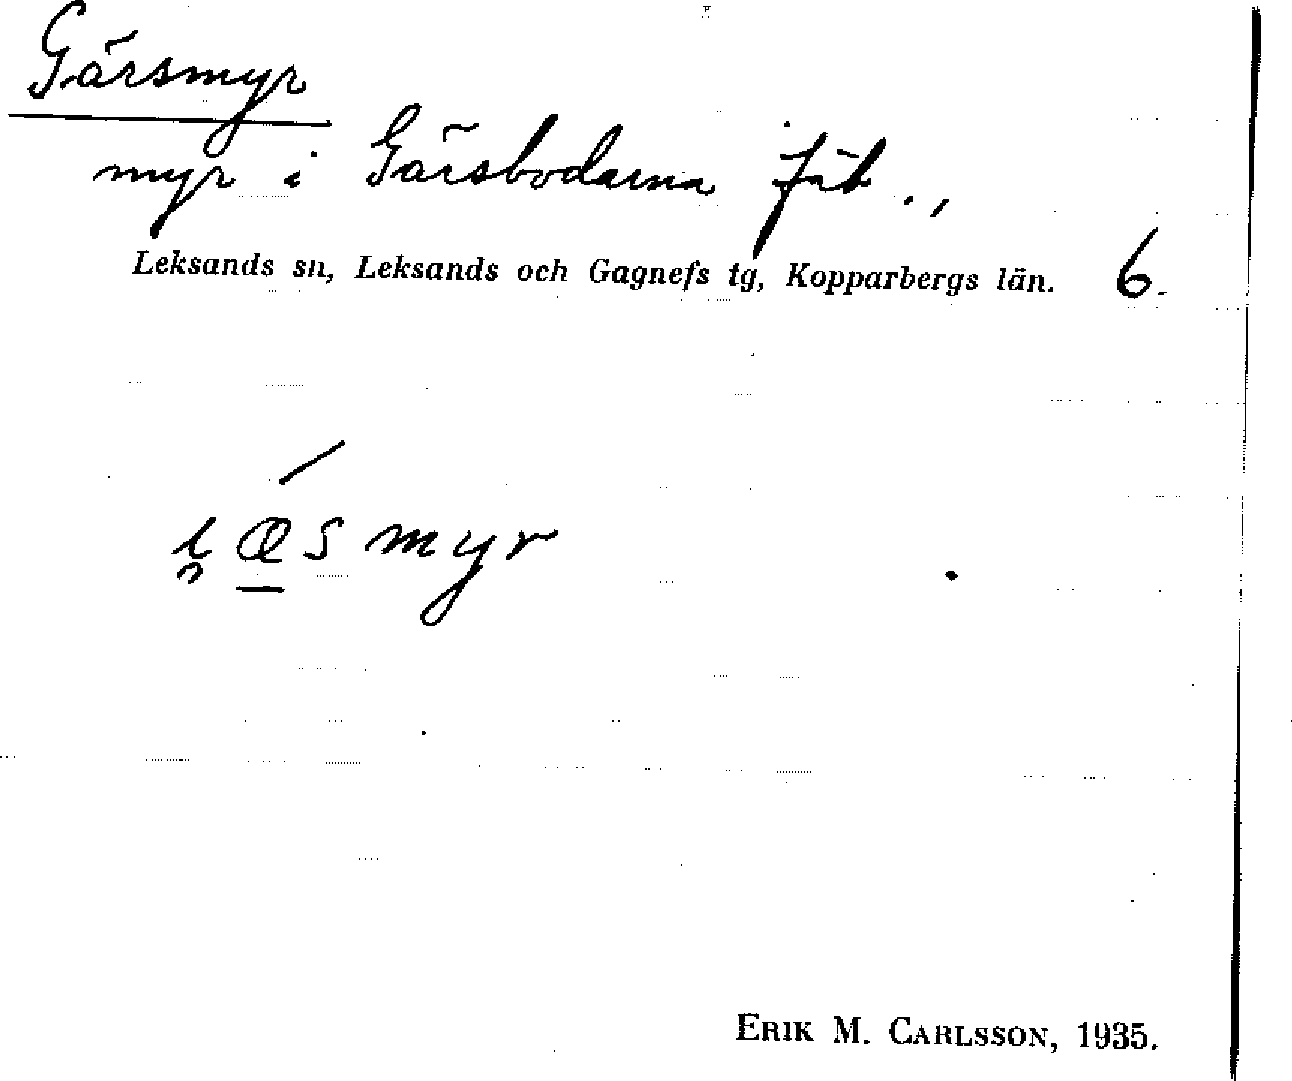 Gärsmyr
myr i Gärsbodarna fäb.,
Leksands sn, Leksands och Gagnefs tg, Kopparbergs län. 6.
i̯ǽ̠smyr
ERIK M. CARLSSON, 1935.